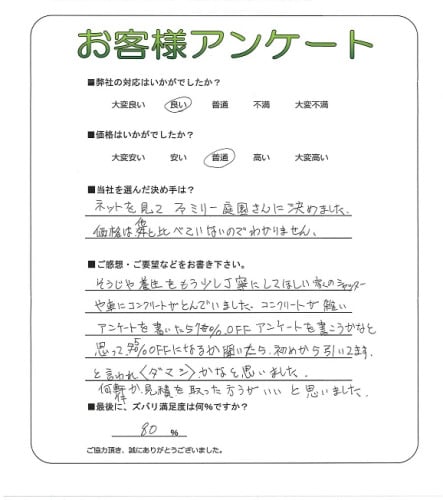 お客様アンケート
■弊社の対応はいかがでしたか？
大変良い 良い 普通 不満 大変不満
■価格はいかがでしたか？
大変安い 安い 普通 高い 大変高い
■当社を選んだ決め手は？
ネットを見て ファミリー庭園さんに決めました。
価格は他と比べていないのでわかりません。
■ご感想・ご要望などをお書き下さい。
そうじや養生をもう少し丁寧にしてほしい 家のシャッター
や車にコンクリートがとんでいました。コンクリートが
アンケートを書いたら %OFF アンケートを書こうかなと
思って、5%OFFになるか聞いたら、初めから引いてます。
と言われ〈ダマシ〉かなと思いました。
何軒か見積を取った方がいいと思いました。
■最後に、ズバリ満足度は何%ですか？
80 %
ご協力頂き、誠にありがとうございました。